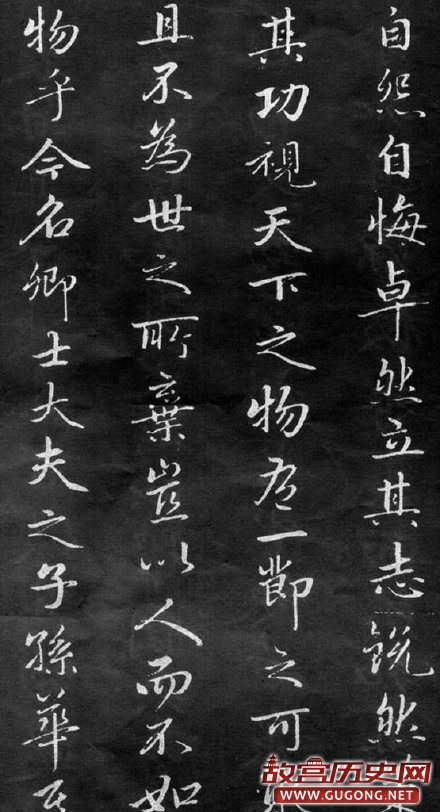 自怨自悔卓然立其志銳然
其功視天下之物有一節之可
且不為世之所棄豈以人而不如
物乎今名卿士大夫之子孫華其
故宫历史网
WWW.GUGONG.NET